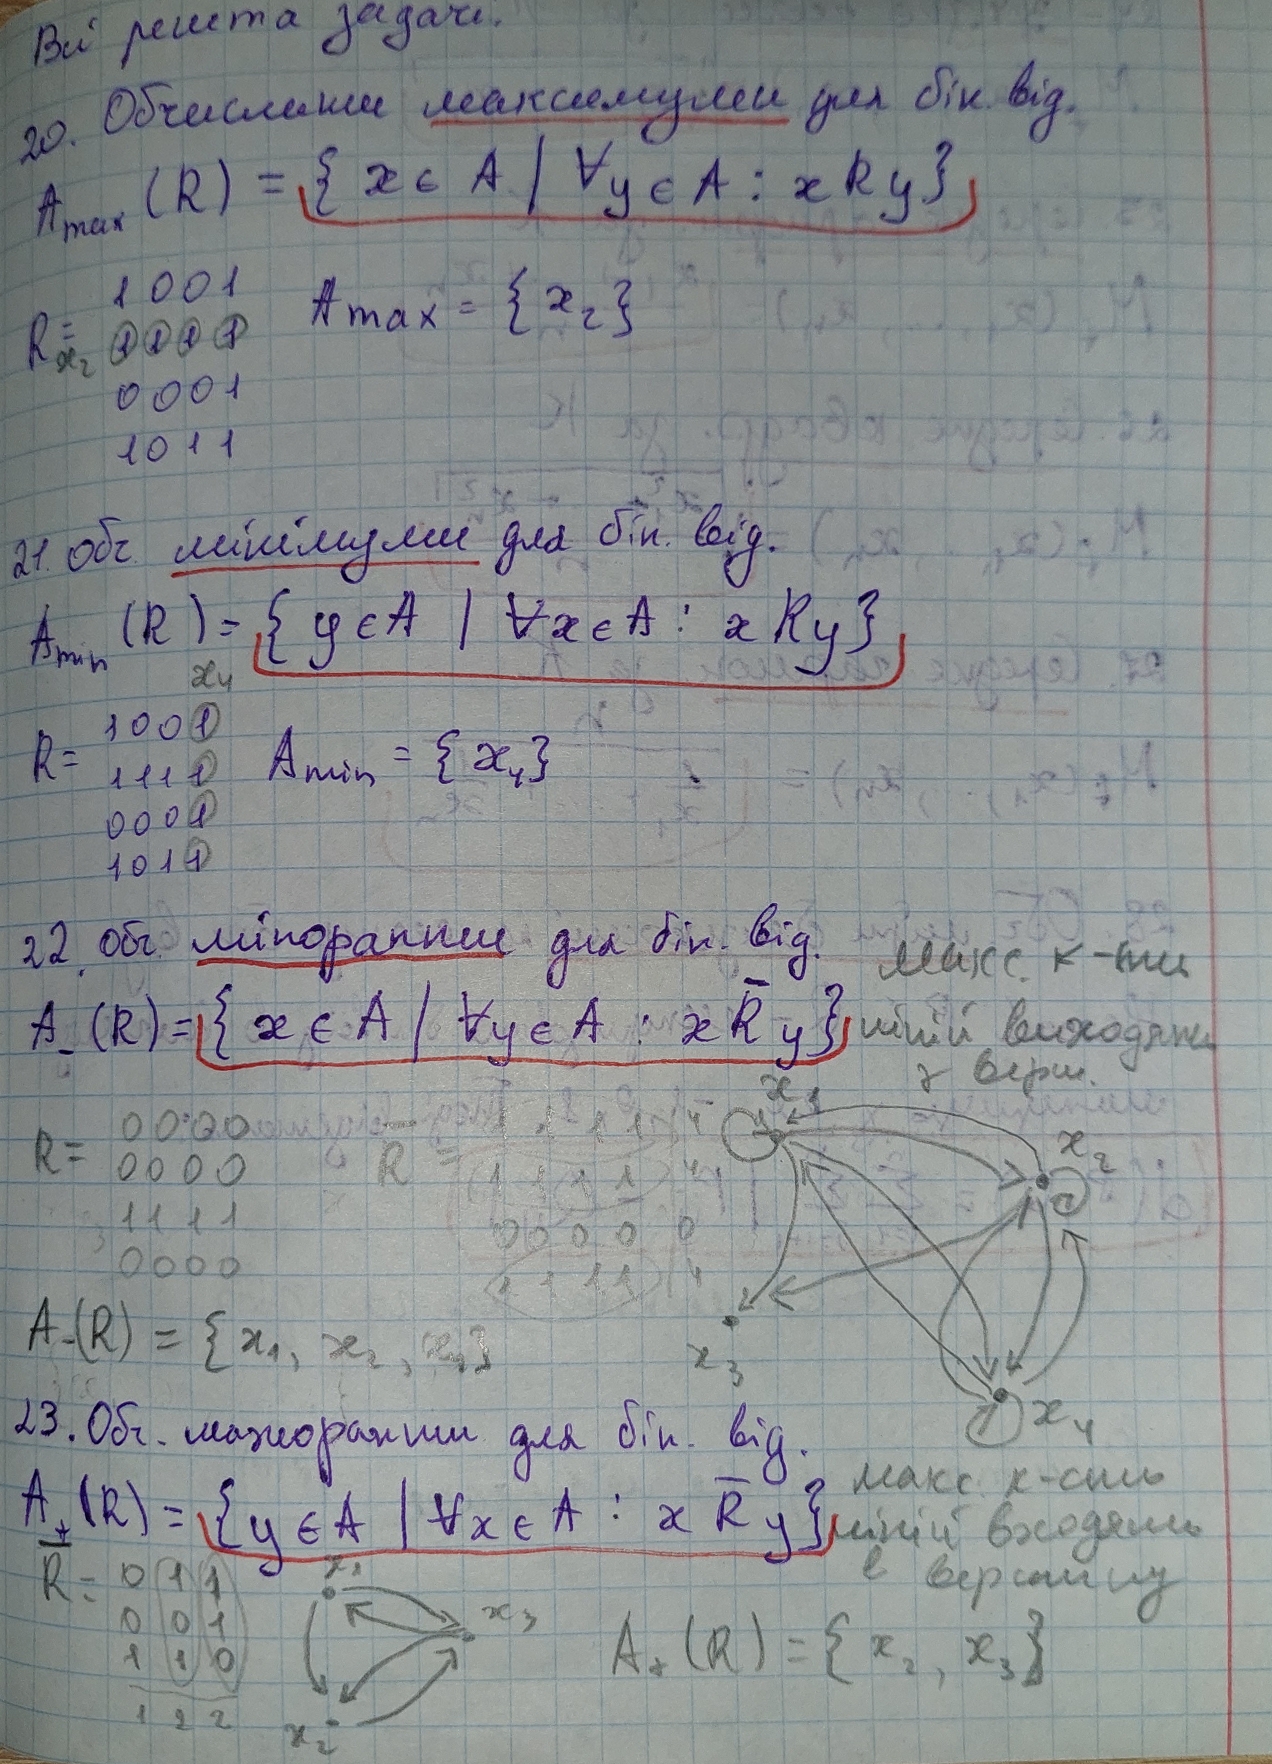 Всі решта задачі.
20. Обчислити максимуми для бін. від.
A max (R) = { x ∈ A | ∀y ∈ A : x R y }
R = 1 0 0 1
x₂ 1 1 1 1
0 0 0 1
1 0 1 1
A max = { x₂ }
21. Обч. мінімуми для бін. від.
A min (R) = { y ∈ A | ∀x ∈ A : x R y }
x₄
R = 1 0 0 1
1 1 1 1
0 0 0 1
1 0 1 1
A min = { x₄ }
22. Обч. міноранти для бін. від.
A₋ (R) = { x ∈ A | ∀y ∈ A : x R̅ y }
макс. к-ти
ліній виходять
з верш.
R = 0 0 0 0
0 0 0 0
1 1 1 1
0 0 0 0
R̅ = 1 1 1 1 | 4
1 1 1 1 | 4
0 0 0 0 0
1 1 1 1 | 4
x₁
x₂
x₃
x₄
A₋(R) = { x₁, x₂, x₄ }
23. Обч. мажоранти для бін. від.
A₊ (R) = { y ∈ A | ∀x ∈ A : x R̅ y }
макс. к-сть
ліній входять
в вершину
R̅ = 0 1 1
0 0 1
1 1 0
1 2 2
x₁
x₃
x₂
A₊ (R) = { x₂, x₃ }